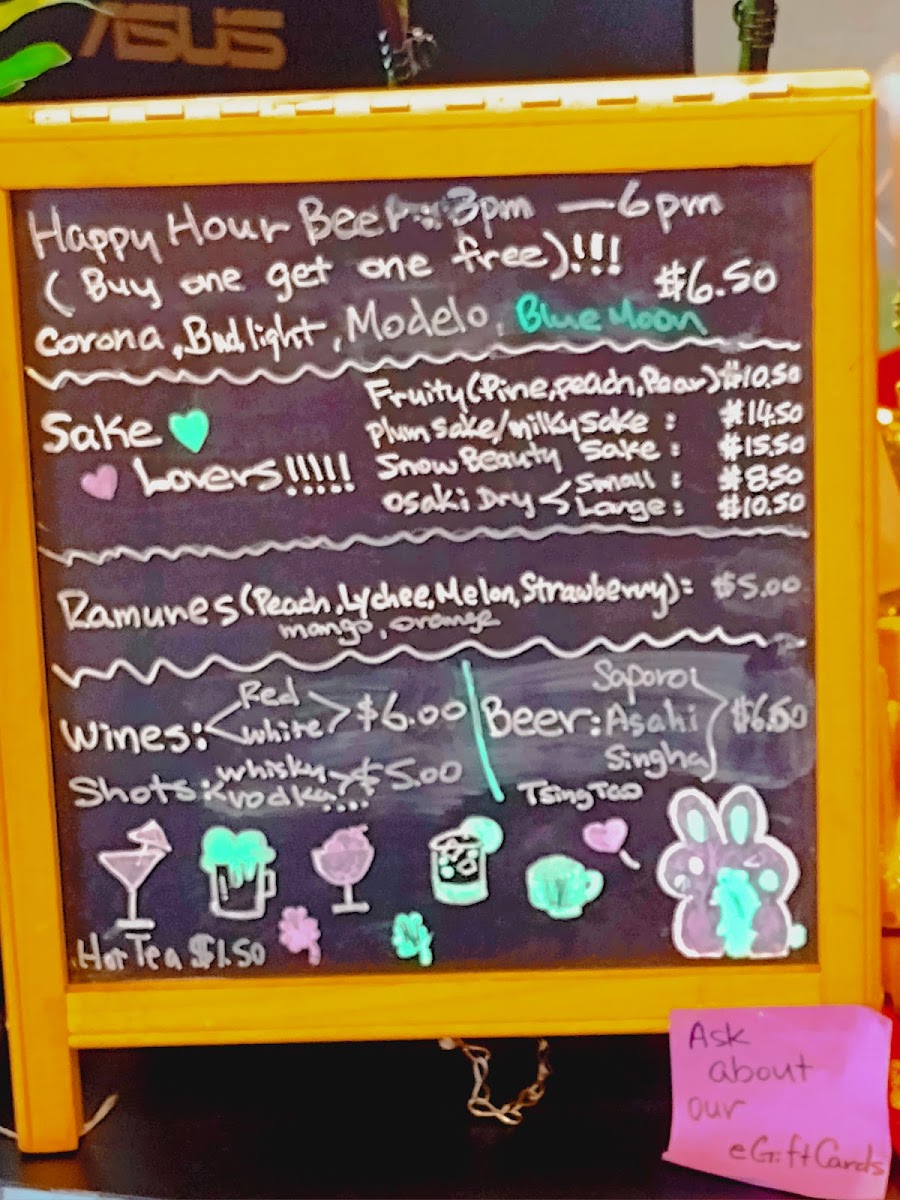 ASUS
Happy Hour Beer: 3pm — 6pm
( Buy one get one free)!!!
$6.50
Corona, Bud light, Modelo, Blue Moon
Sake
Lovers!!!!!
Fruity (Pine, peach, Pear) $10.50
Plum sake/milky sake : $14.50
Snow Beauty Sake : $15.50
Osaki Dry < Small : $8.50
Large : $10.50
Ramunes (Peach, Lychee, Melon, Strawberry): $5.00
mango, orange
Wines: Red
white $6.00
Shots: whisky
vodka.... $5.00
Beer: Saporoi
Asahi $6.50
Singha
TsingTao
Hot Tea $1.50
Ask
about
our
eGiftCards